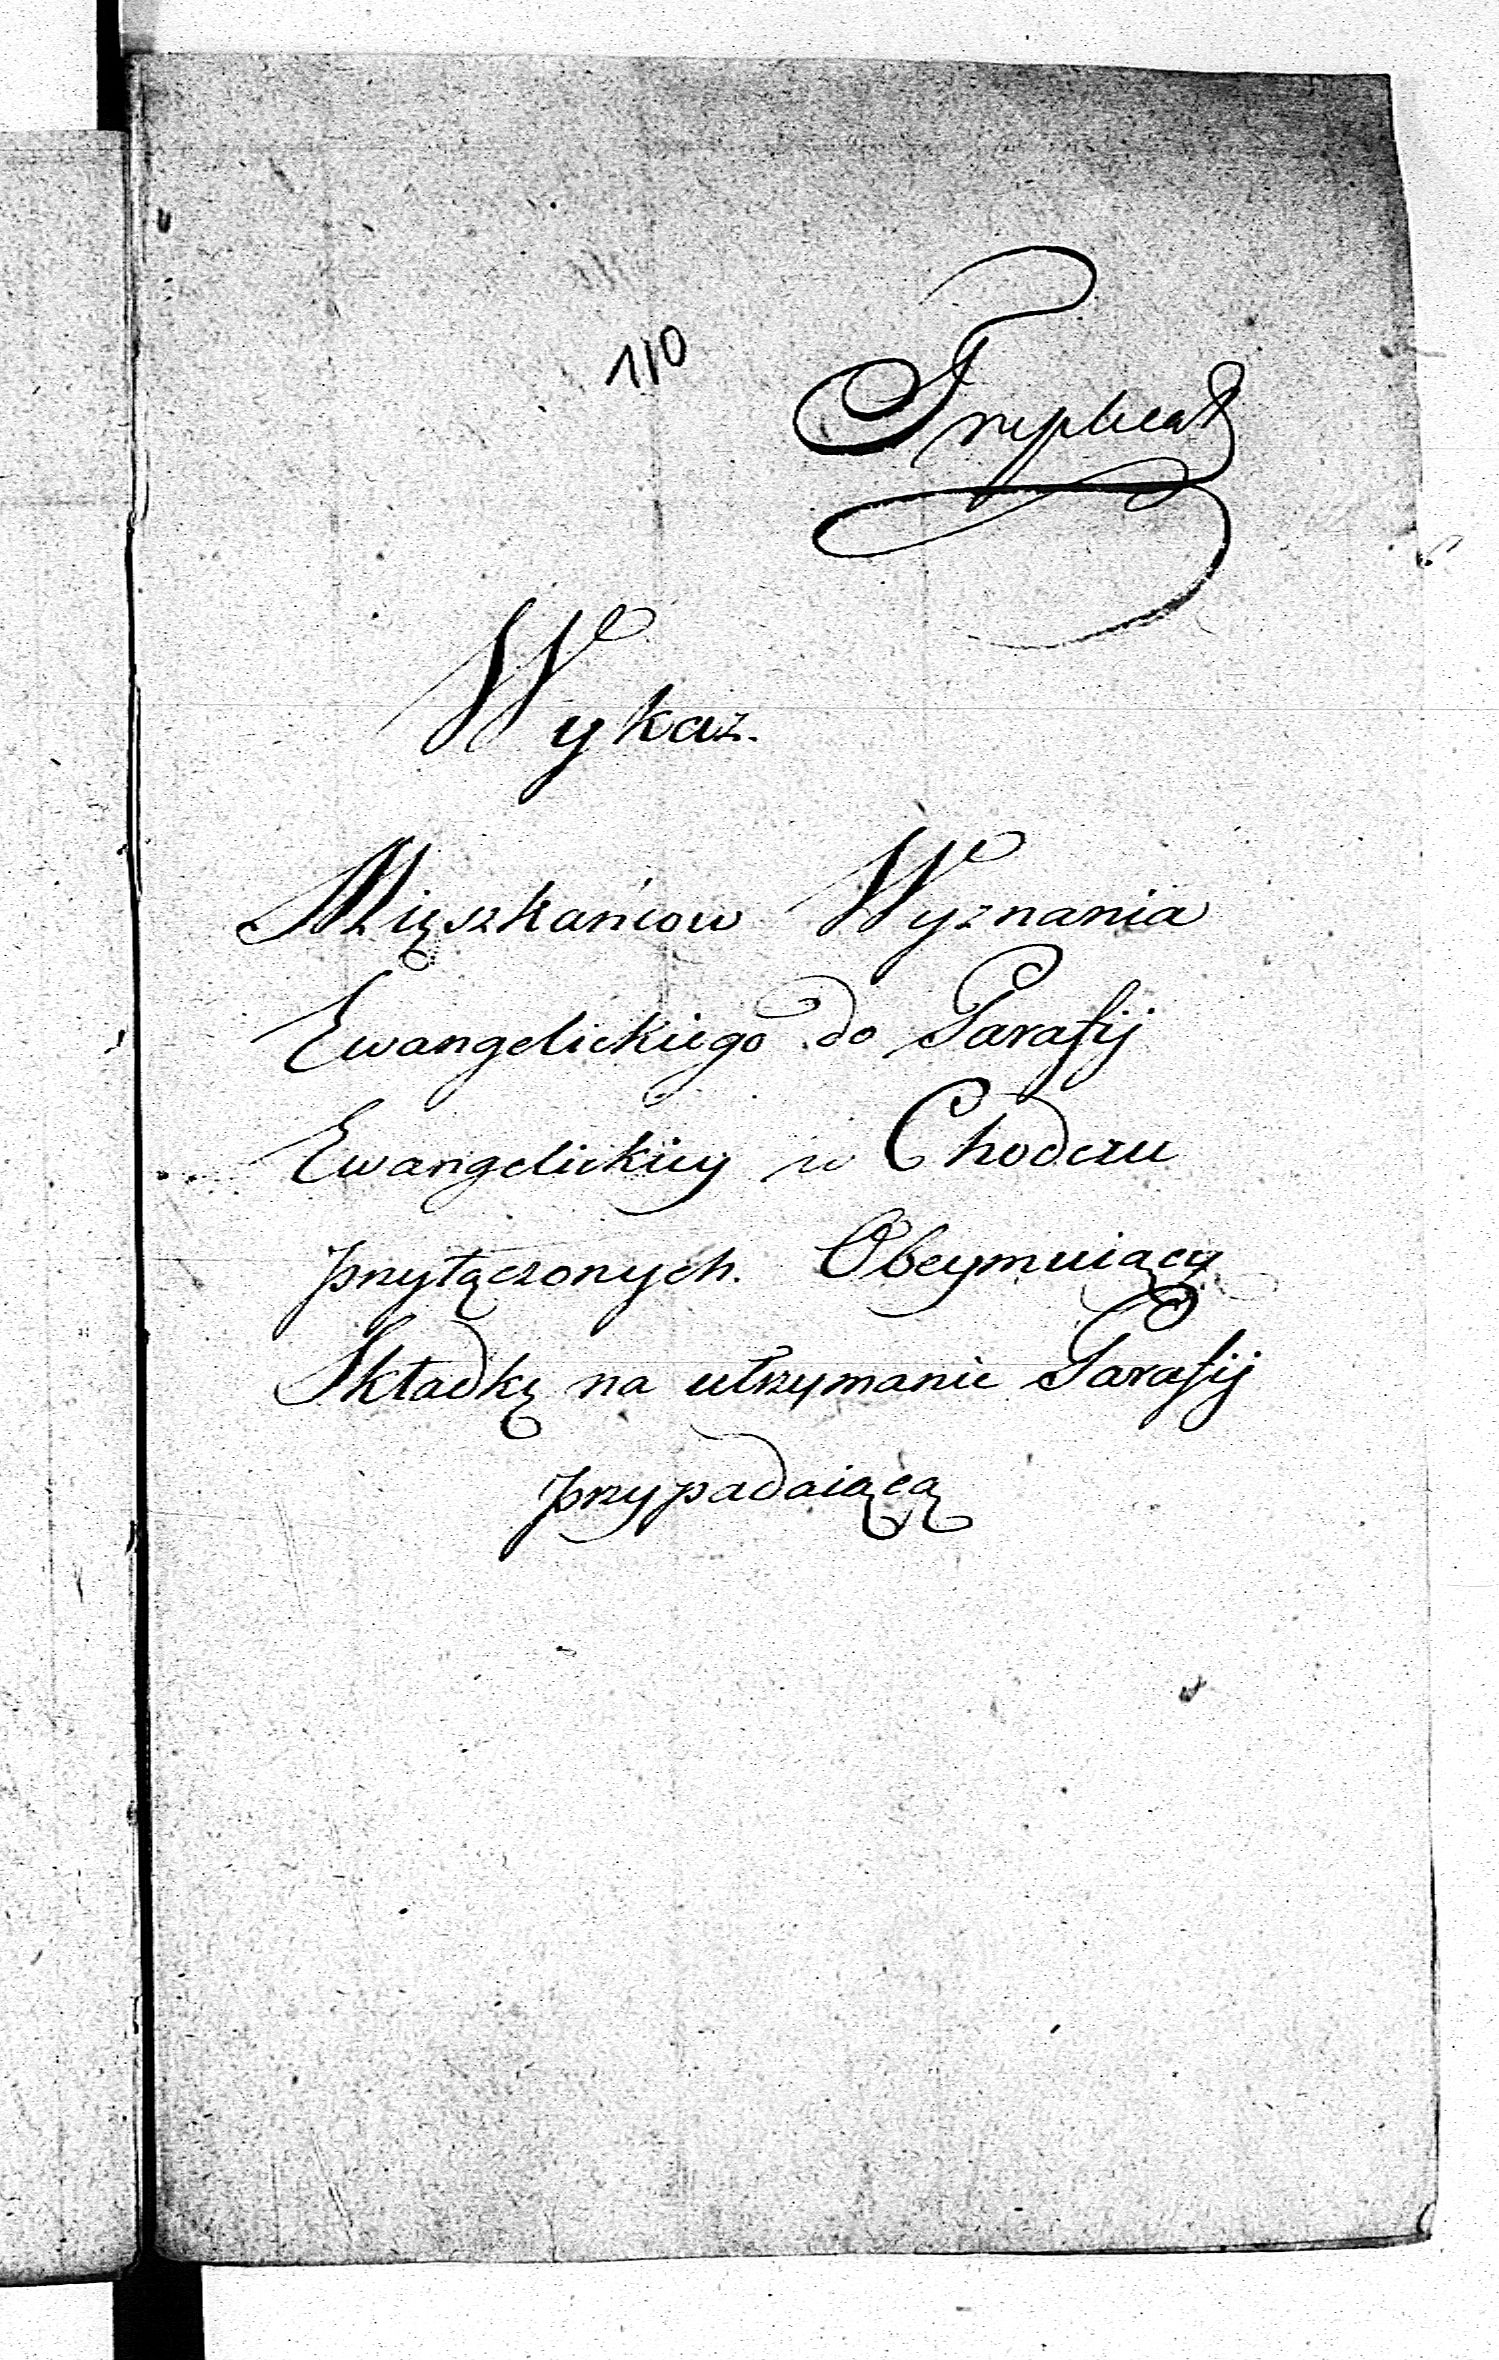 110
Tryplicat
Wykaz.
Mięszkańcow Wyznania
Ewangelickiego do Parafij
Ewangelickiey w Chodczu
przyłączonych. Obeymuiący
Składkę na utrzymanie Parafij
przypadaiącą